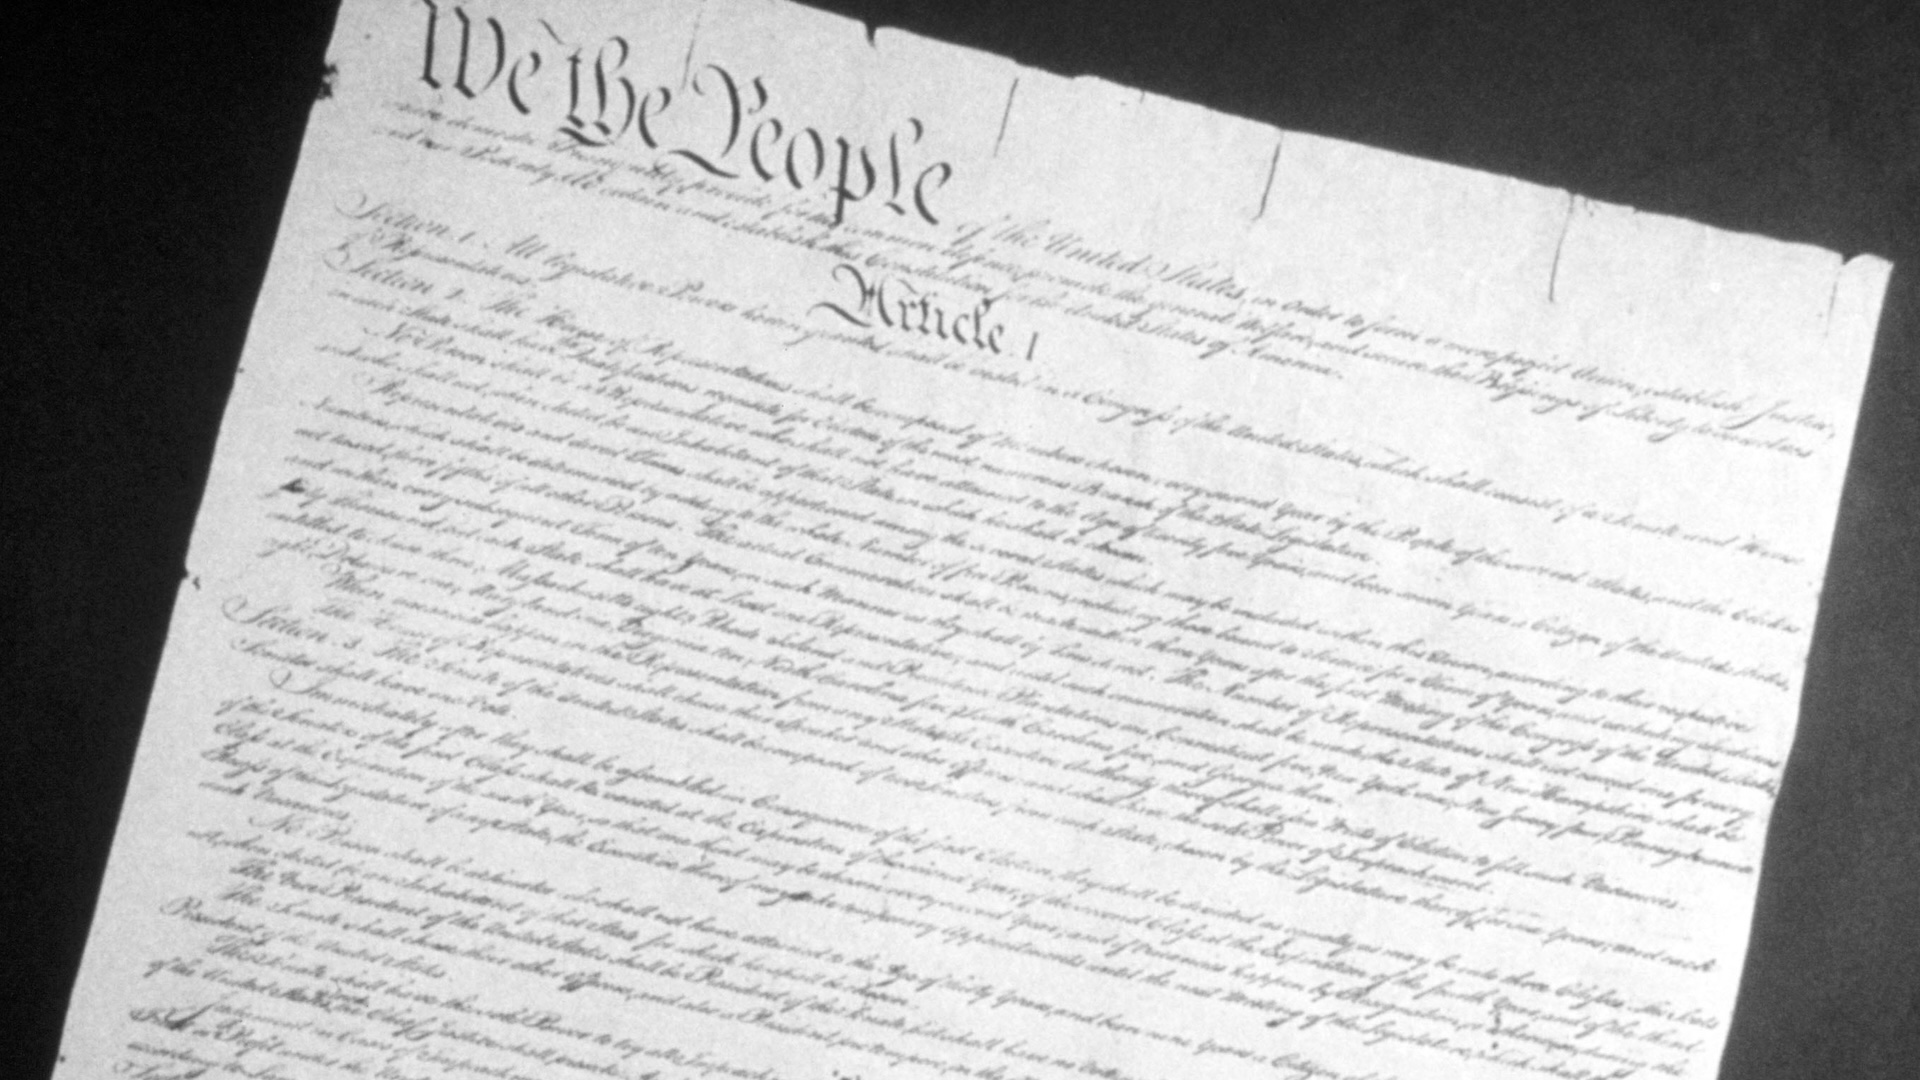 We the People of the United States, in Order to form a more perfect Union, establish Justice,
insure domestic Tranquility, provide for the common defence, promote the general Welfare, and secure the Blessings of Liberty to ourselves
and our Posterity, do ordain and establish this Constitution for the United States of America.
Article. I
Section. 1. All legislative Powers herein granted shall be vested in a Congress of the United States, which shall consist of a Senate and House
of Representatives.
Section. 2. The House of Representatives shall be composed of Members chosen every second Year by the People of the several States, and the Electors
in each State shall have the Qualifications requisite for Electors of the most numerous Branch of the State Legislature.
No Person shall be a Representative who shall not have attained to the Age of twenty five Years, and been seven Years a Citizen of the United States,
and who shall not, when elected, be an Inhabitant of that State in which he shall be chosen.
Representatives and direct Taxes shall be apportioned among the several States which may be included within this Union, according to their respective
Numbers, which shall be determined by adding to the whole Number of free Persons, including those bound to Service for a Term of Years, and excluding Indians
not taxed, three fifths of all other Persons. The actual Enumeration shall be made within three Years after the first Meeting of the Congress of the United States,
and within every subsequent Term of ten Years, in such Manner as they shall by Law direct. The Number of Representatives shall not exceed one for every
thirty Thousand, but each State shall have at Least one Representative; and until such enumeration shall be made, the State of New Hampshire shall be
entitled to chuse three, Massachusetts eight, Rhode Island and Providence Plantations one, Connecticut five, New York six, New Jersey four, Pennsylvania
eight, Delaware one, Maryland six, Virginia ten, North Carolina five, South Carolina five, and Georgia three.
When vacancies happen in the Representation from any State, the Executive Authority thereof shall issue Writs of Election to fill such Vacancies.
The House of Representatives shall chuse their Speaker and other Officers; and shall have the sole Power of Impeachment.
Section. 3. The Senate of the United States shall be composed of two Senators from each State, chosen by the Legislature thereof, for six Years; and each
Senator shall have one Vote.
Immediately after they shall be assembled in Consequence of the first Election, they shall be divided as equally as may be into three Classes. The Seats
of the Senators of the first Class shall be vacated at the Expiration of the second Year, of the second Class at the Expiration of the fourth Year, and of the third
Class at the Expiration of the sixth Year, so that one third may be chosen every second Year; and if Vacancies happen by Resignation, or otherwise, during the
Recess of the Legislature of any State, the Executive thereof may make temporary Appointments until the next Meeting of the Legislature, which shall
such Vacancies.
No Person shall be a Senator who shall not have attained to the Age of thirty Years, and been nine Years a Citizen of
not, when elected, be an Inhabitant of that State for which he shall be chosen.
The Vice President of the United States shall be President of the Senate, but shall have no Vote
The Senate shall chuse their other Officers, and also a President pro tempore, in the
President of the United States.
The Senate shall have the sole Power to try all Impeachments
of the United States the Chief Justice shall preside
Judgment in Cases of Impeachment